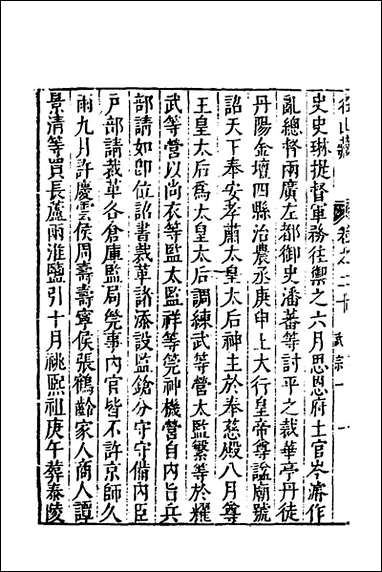 史史琳提督軍務往禦之六月思恩府土官岑濬作
亂總督兩廣左都御史潘蕃等討平之裁華亭丹徒
丹陽金壇四縣治農丞庚申上大行皇帝尊諡廟號
詔天下奉安孝肅太皇太后神主於奉慈殿八月尊
王皇太后為太皇太后調練武等營太監繁等於耀
武等營以尚衣等監太監祥等筦神機營自內旨兵
部請如即位詔書裁革諸添設監鎗分守守備內臣
戶部請裁革各倉庫監局筦事內官皆不許京師久
雨九月許慶雲侯周壽壽寧侯張鶴齡家人商人譚
景清等買長蘆兩淮鹽引十月祧熙祖庚午葬泰陵